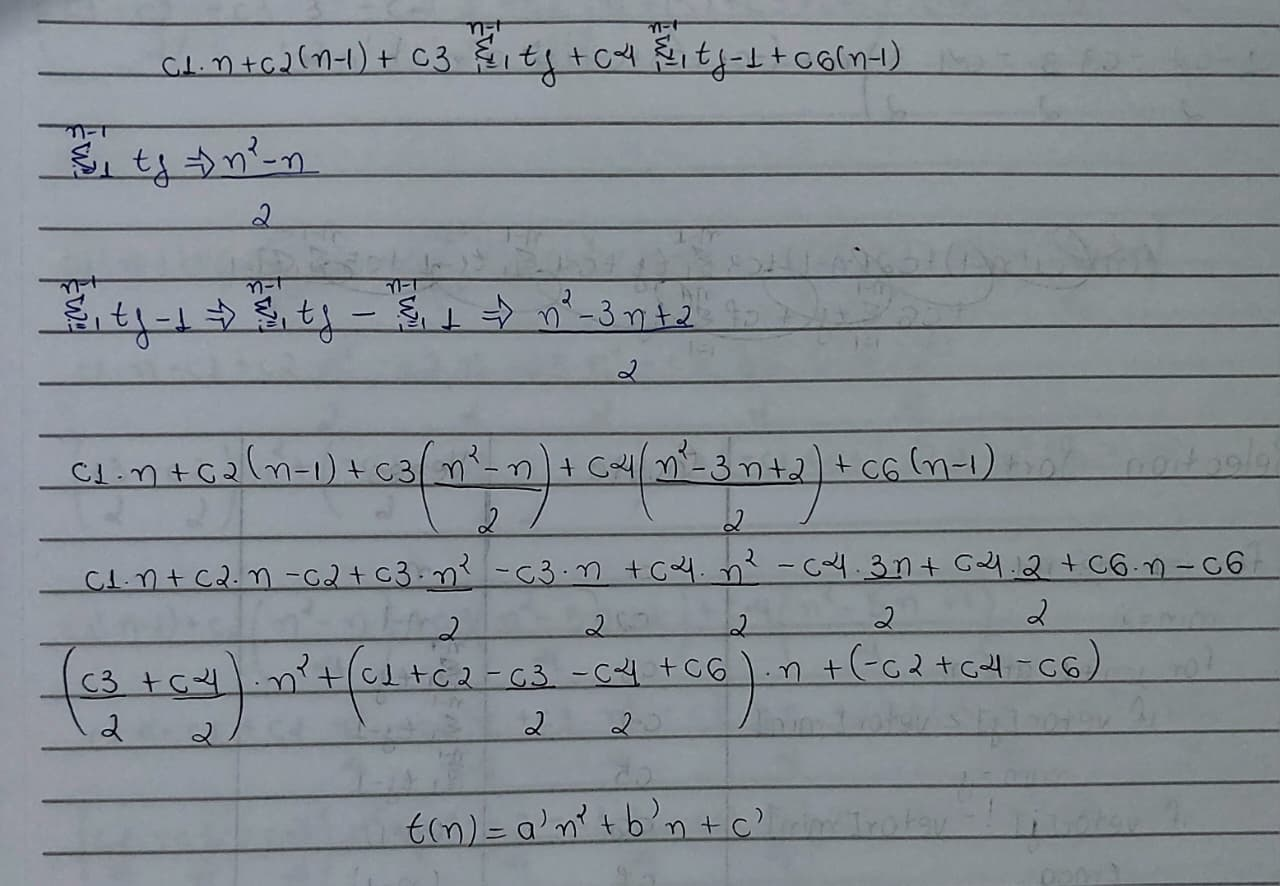 c1.n + c2(n-1) + c3 n-1 Σ i=1 tj + c4 n-1 Σ i=1 tj-1 + c6(n-1)
n-1 Σ i=1 tj ⇒ n²-n / 2
n-1 Σ i=1 tj-1 ⇒ n-1 Σ i=1 tj - n-1 Σ i=1 1 ⇒ n²-3n+2 / 2
c1.n + c2(n-1) + c3(n²-n / 2) + c4(n²-3n+2 / 2) + c6(n-1)
c1.n + c2.n - c2 + c3.n²/2 - c3.n/2 + c4.n²/2 - c4.3n/2 + c4.2/2 + c6.n - c6
(c3/2 + c4/2).n² + (c1 + c2 - c3/2 - c4/2 + c6).n + (-c2 + c4 - c6)
t(n) = a'n² + b'n + c'